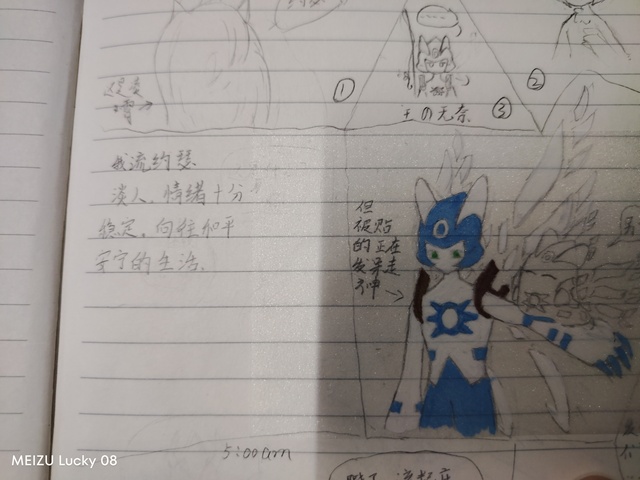 ①
②
王の无奈
③
我流约瑟
淡人，情绪十分
稳定，向往和平
安宁的生活。
但
被贴
的正在
发呆走
神
5:00am
MEIZU Lucky 08